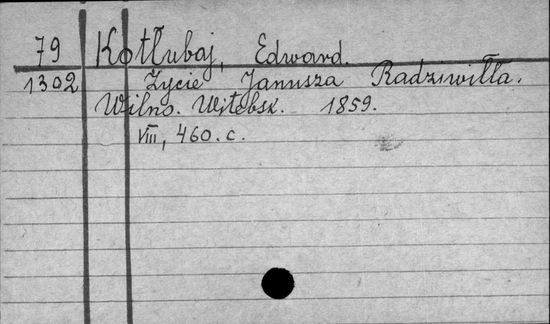 79 Kotłubaj, Edward.
1302 Życie Janusza Radziwiłła.
Wilno. Witebsk. 1859.
VIII, 460. c.